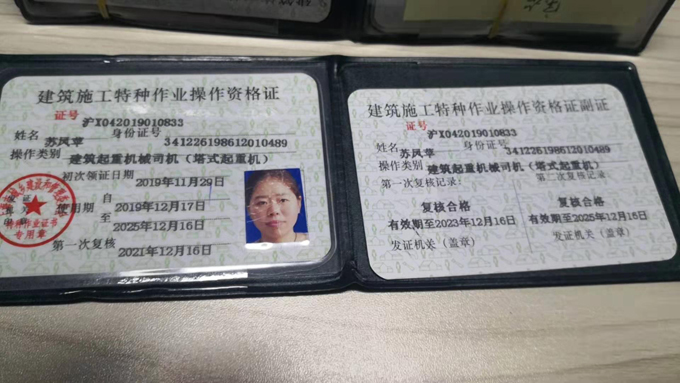 建筑施工特种作业操作资格证
证号
沪X042019010833
姓名 苏凤苹
身份证号 341226198612010489
操作类别 建筑起重机械司机（塔式起重机）
初次领证日期
2019年11月29日
使用期 2019年12月17日
至
2025年12月16日
第一次复核 2021年12月16日
特种作业证号
专用章
建筑施工特种作业操作资格证副证
证号
沪X042019010833
姓名 苏凤苹
身份证号 341226198612010489
操作类别 建筑起重机械司机（塔式起重机）
第一次复核记录: 第二次复核记录
复核合格 复核合格
有效期至2023年12月16日 有效期至2025年12月16日
发证机关（盖章） 发证机关（盖章）